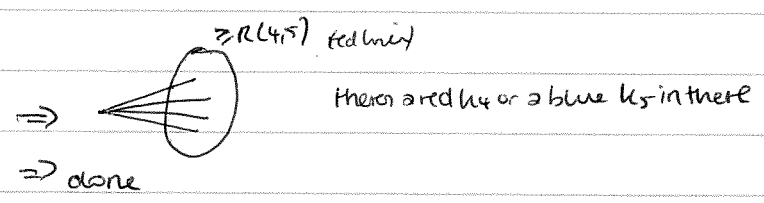 ≥R(4,5) red lines
there's a red k4 or a blue k5 in there
⇒
⇒ done